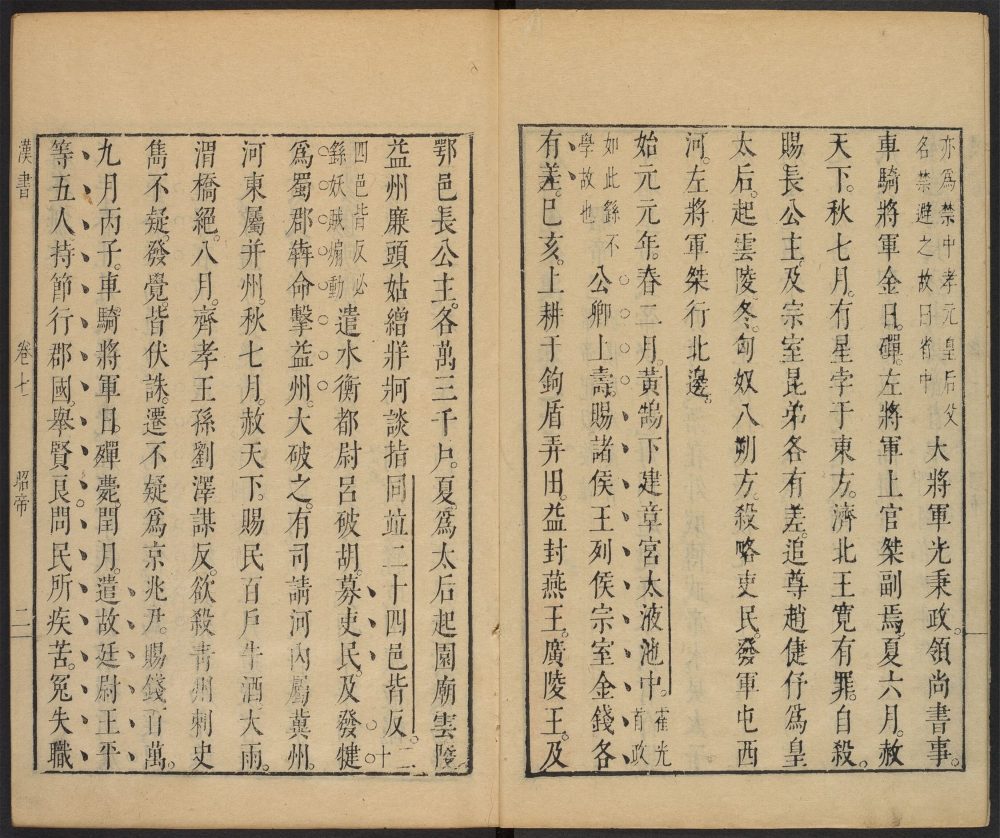 亦爲禁中孝元皇后父
名禁避之故曰省中
大將軍光秉政。領尚書事。
車騎將軍金日磾。左將軍上官桀副焉。夏六月。赦
天下。秋七月。有星孛于東方。濟北王寬有罪。自殺。
賜長公主。及宗室昆弟各有差。追尊趙倢伃爲皇
太后。起雲陵。冬。匈奴入朔方。殺略吏民。發軍屯西
河。左將軍桀行北邊。
始元元年。春二月。黃鵠下建章宮太液池中。
霍光
首政
如此繇不
學故也
公卿上壽。賜諸侯王列侯宗室金錢各
有差。已亥。上耕于鉤盾弄田。益封燕王。廣陵王。及
鄂邑長公主。各萬三千戶。夏。爲太后起園廟雲陵。
益州廉頭姑繒牂牁談指同竝二十四邑皆反。
二
十
四邑皆反必
繇妖賊煽動
遣水衡都尉呂破胡。募吏民。及發犍
爲蜀郡犇命擊益州。大破之。有司請河內屬冀州。
河東屬并州。秋七月。赦天下。賜民百戶牛酒大雨。
渭橋絕。八月。齊孝王孫劉澤謀反。欲殺青州刺史
雋不疑。發覺。皆伏誅。遷不疑爲京兆尹。賜錢百萬。
九月丙子。車騎將軍日磾薨。閏月。遣故廷尉王平
等五人。持節行郡國。舉賢良。問民所疾苦。冤失職
漢書 卷七 昭帝 二